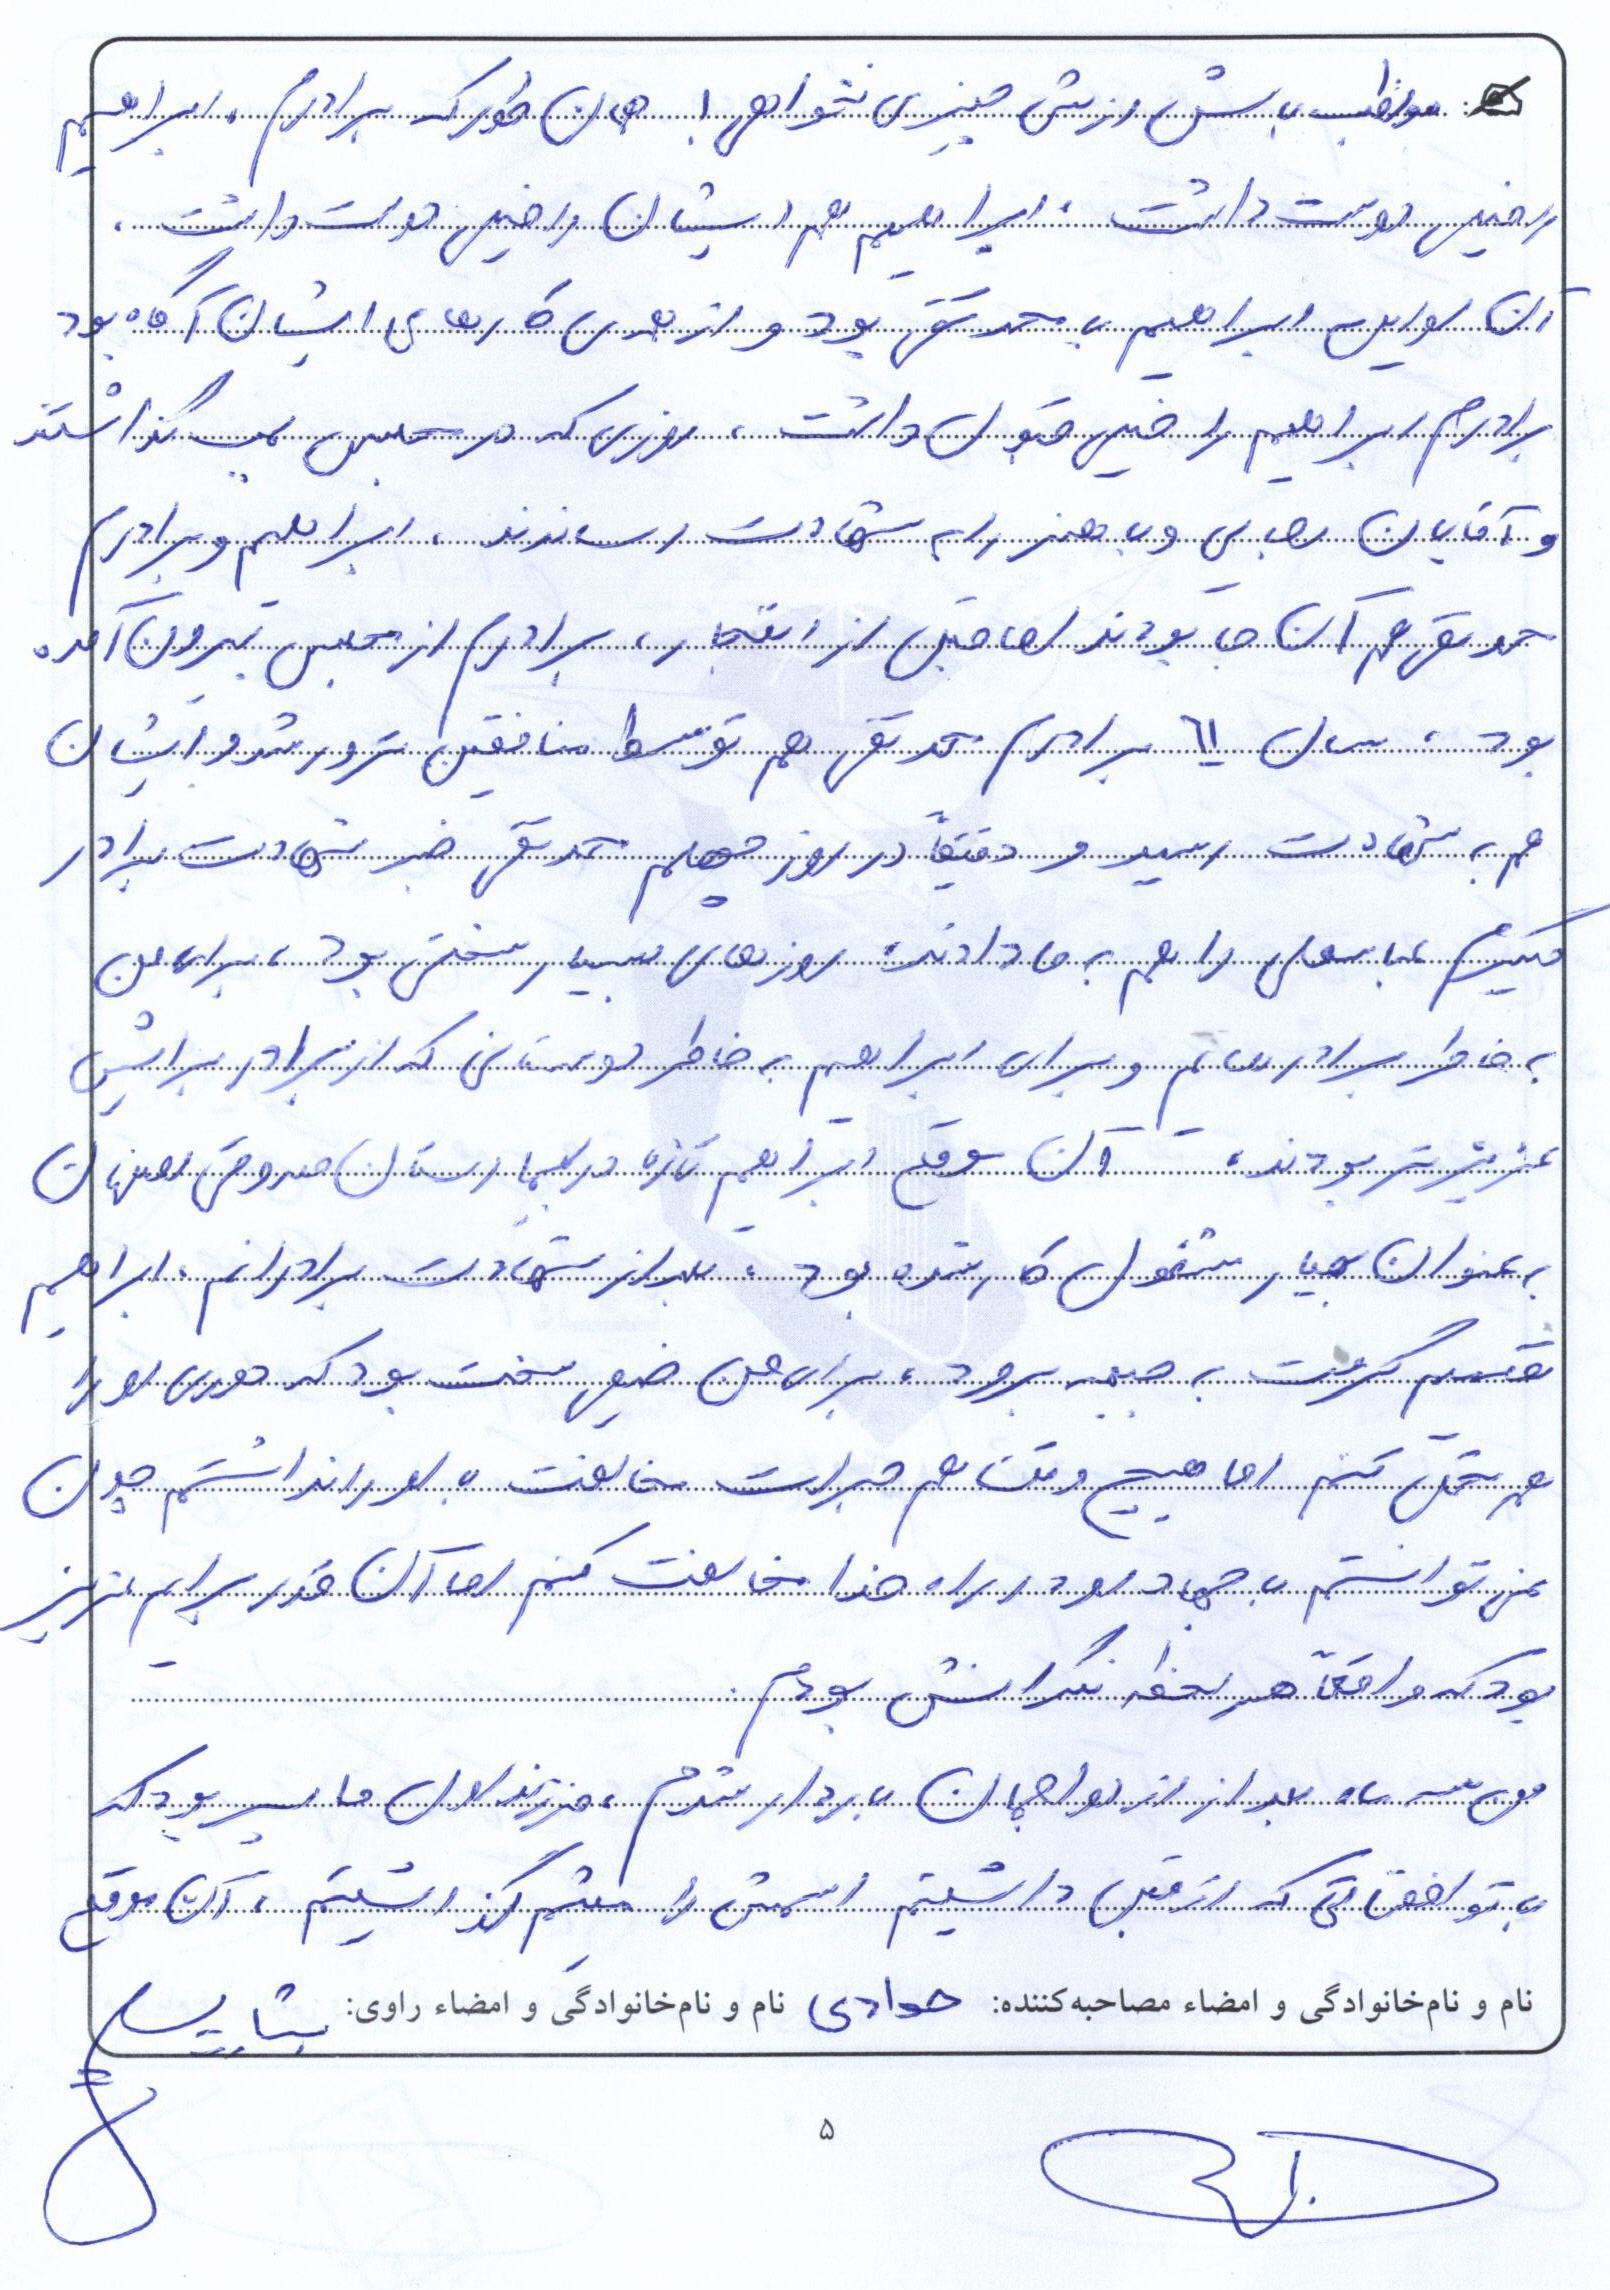 مواظب باش ازش چیزی نخواهی! همان طور که برادرم، ابراهیم
را خیلی دوست داشت، ابراهیم هم ایشان را خیلی دوست داشت،
آن اوایل ابراهیم با محمد تقی بود و از همه‌ی کارهای ایشان آگاه بود
برادرم ابراهیم را خیلی قبول داشت، روزی که در مجلس بمب گذاشتند
و آقایان رجایی و باهنر را به شهادت رساندند، ابراهیم و برادرم
محمد تقی هم آن جا بودند اما قبل از انفجار، برادرم از مجلس بیرون آمده
بود، سال ٦١ برادرم محمد تقی هم توسط منافقین ترور شد و ایشان
هم به شهادت رسید و دقیقاً در روز چهلم محمد تقی خبر شهادت برادر
دیگرم عباسعلی را هم به ما دادند، روزهای بسیار سختی بود، برای من
به خاطر برادرهایم و برای ابراهیم به خاطر دوستانی که از برادر برایش
عزیزتر بودند، آن موقع ابراهیم تازه در بیمارستان سروش اصفهان
به عنوان بهیار مشغول کار شده بود، بعد از شهادت برادرانم، ابراهیم
تصمیم گرفت به جبهه برود، برای من خیلی سخت بود که دوری او را
هم تحمّل کنم اما هیچ وقت هم جرات مخالفت با او را نداشتم چون
نمی توانستم با جهاد او در راه خدا مخالفت کنم اما آن قدر برایم عزیز
بود که واقعاً هر لحظه نگرانش بودم.
من سه ماه بعد از ازدواجمان باردار شدم، فرزند اول ما پسر بود که
با توافقاتی که از قبل داشتیم اسمش را میثم گذاشتیم، آن موقع
نام و نام‌خانوادگی و امضاء مصاحبه‌کننده: جوادی نام و نام‌خانوادگی و امضاء راوی:
۵